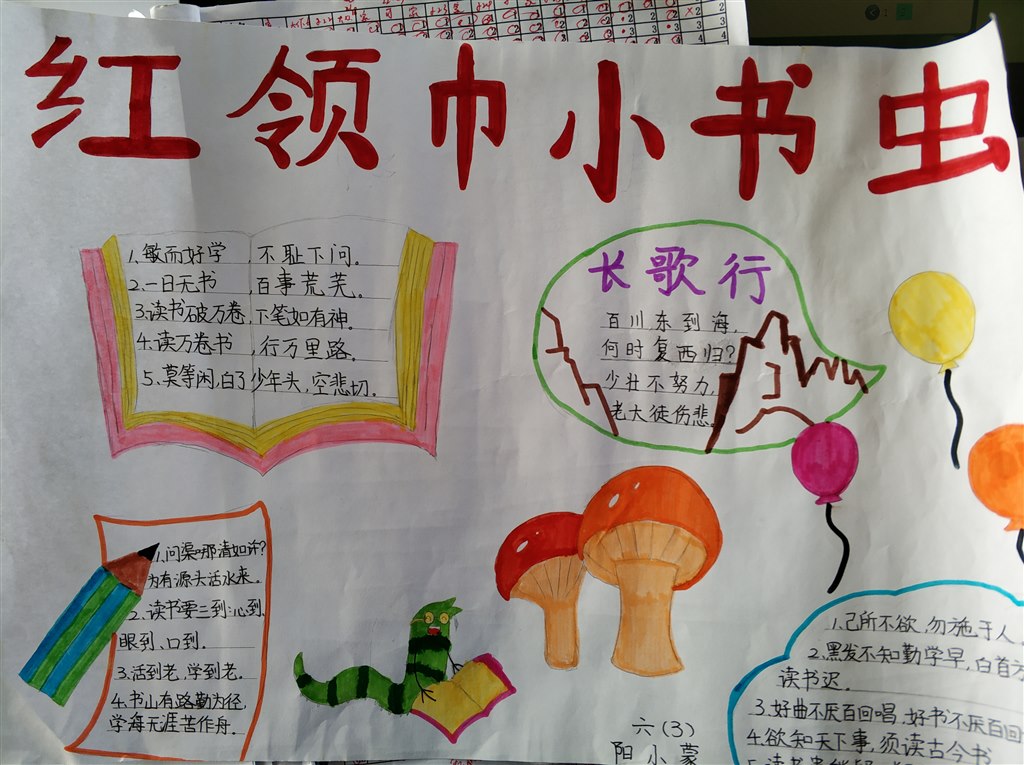 红领巾小书虫
1.敏而好学,不耻下问。
2.一日无书,百事荒芜。
3.读书破万卷,下笔如有神。
4.读万卷书,行万里路。
5.莫等闲,白了少年头,空悲切。
长歌行
百川东到海,
何时复西归?
少壮不努力,
老大徒伤悲。
1.问渠哪清如许?
为有源头活水来。
2.读书要三到:心到、
眼到、口到。
3.活到老,学到老。
4.书山有路勤为径,
学海无涯苦作舟。
1.己所不欲,勿施于人
2.黑发不知勤学早,白首方
读书迟。
3.好曲不厌百回唱,好书不厌百回
4.欲知天下事,须读古今书
六(3)
阳小蒙